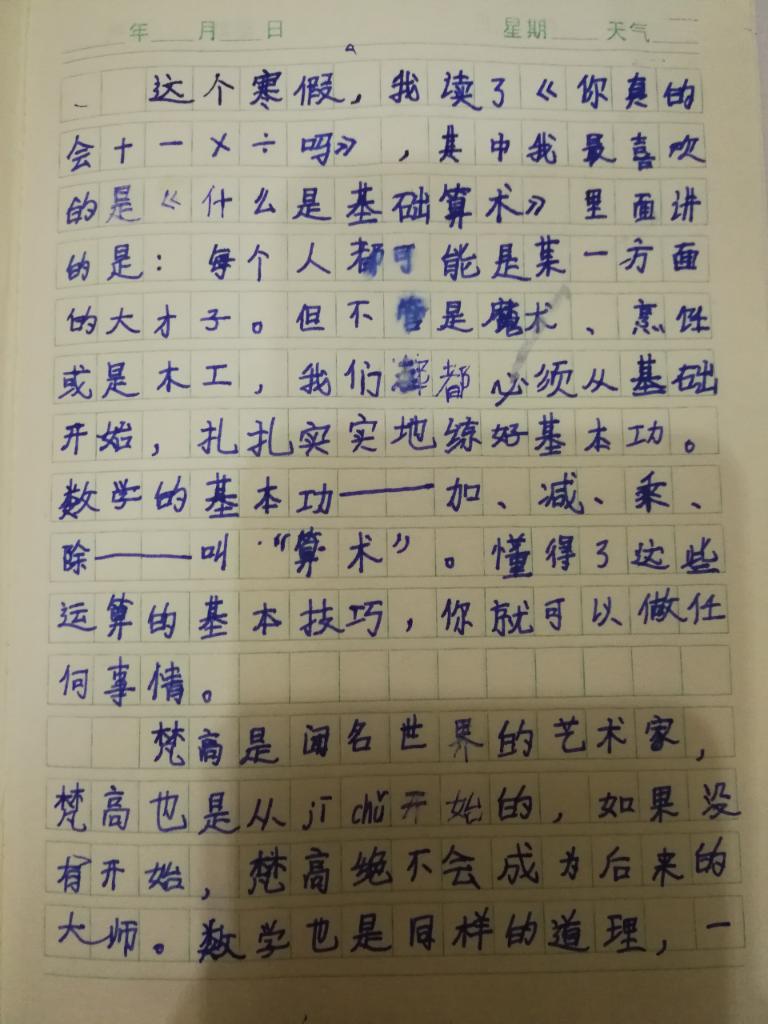 年 月 日 星期 天气
这个寒假，我读了《你真的
会+-×÷吗》，其中我最喜欢
的是《什么是基础算术》里面讲
的是：每个人都可能是某一方面
的大才子。但不管是魔术、烹饪
或是木工，我们都必须从基础
开始，扎扎实实地练好基本功。
数学的基本功——加、减、乘、
除——叫“算术”。懂得了这些
运算的基本技巧，你就可以做任
何事情。
梵高是闻名世界的艺术家，
梵高也是从jī chǔ开始的，如果没
有开始，梵高绝不会成为后来的
大师。数学也是同样的道理，一